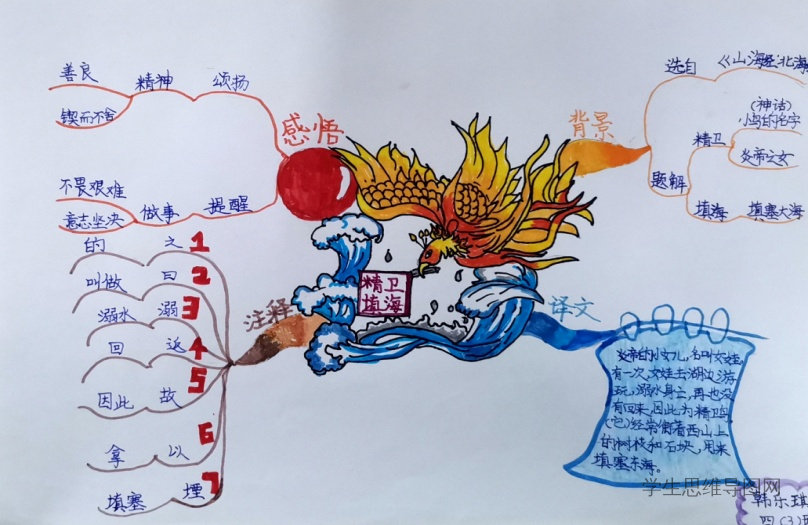 感悟
颂扬
精神
善良
锲而不舍
提醒
做事
不畏艰难
意志坚决
背景
选自
《山海经·北海
题解
精卫
(神话)
小鸟的名字
炎帝之女
填海
填塞大海
精卫
填海
注释
1 之 的
2 曰 叫做
3 溺 溺水
4 返 回
5 故 因此
6 以 拿
7 堙 填塞
译文
炎帝的小女儿,名叫女娃,
有一次,女娃去湖边游
玩,溺水身亡,再也没
有回来,因此为精卫鸟
(它)经常衔着西山上
的树枝和石块,用来
填塞东海。
学生思维导图网
韩乐琪
四(3)班